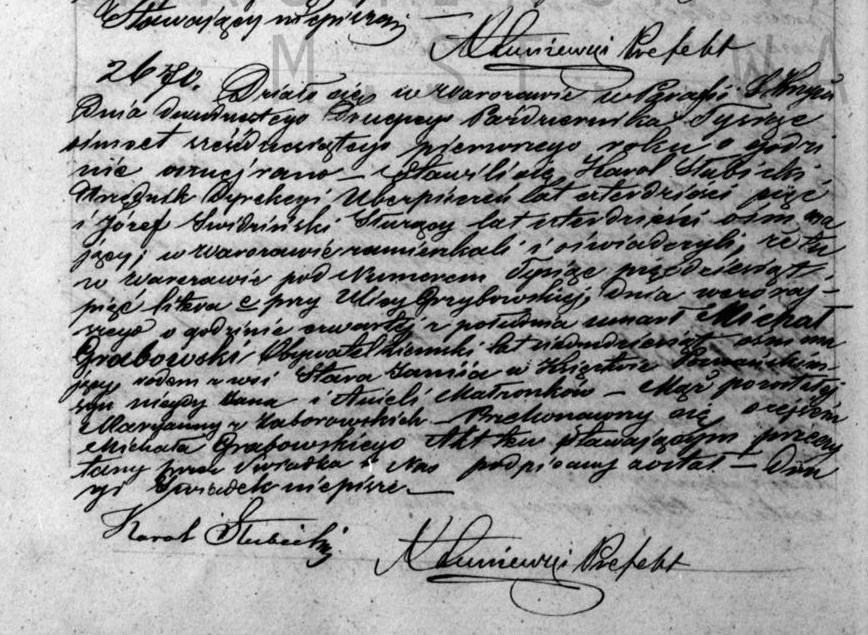 Stawający niepiszą
Prefekt
2670. Działo się w Warszawie w Parafii S. Krzyża
Dnia dwudziestego Drugiego Października Tysiąc
ośmset sześćdziesiątego pierwszego roku o godzi
nie rano – Stawili się, Karol Słubicki
Urzędnik Dyrekcyi Ubezpieczeń lat czterdzieści pięć
i Józef Świdziński Służący lat czterdzieści ośm ma
jący, w Warszawie zamieszkali i oświadczyli, że tu
w Warszawie pod Numerem Tysiąc pięćdziesiąt
pięć litera c przy Ulicy Grzybowskiej, dnia wczoraj-
szego o godzinie czwartej z południa umarł Michał
Grabowski Obywatel Ziemski lat siedmdziesiąt ośm ma
jący, rodem z wsi Stara w Księstwie Poznańskim
syn niegdy Jana i Anieli Małżonków – Mąż pozostałej
Maryanny z Zaborowskich – Przekonawszy się o zejściu
Michała Grabowskiego Akt ten stawającym przeczy
tany przez Świadka i Nas podpisany został – Dru
gi Świadek niepisze –
Karol Słubicki Prefekt